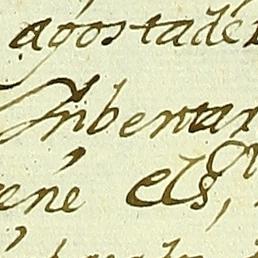 agostade
Inbentar
ene els,